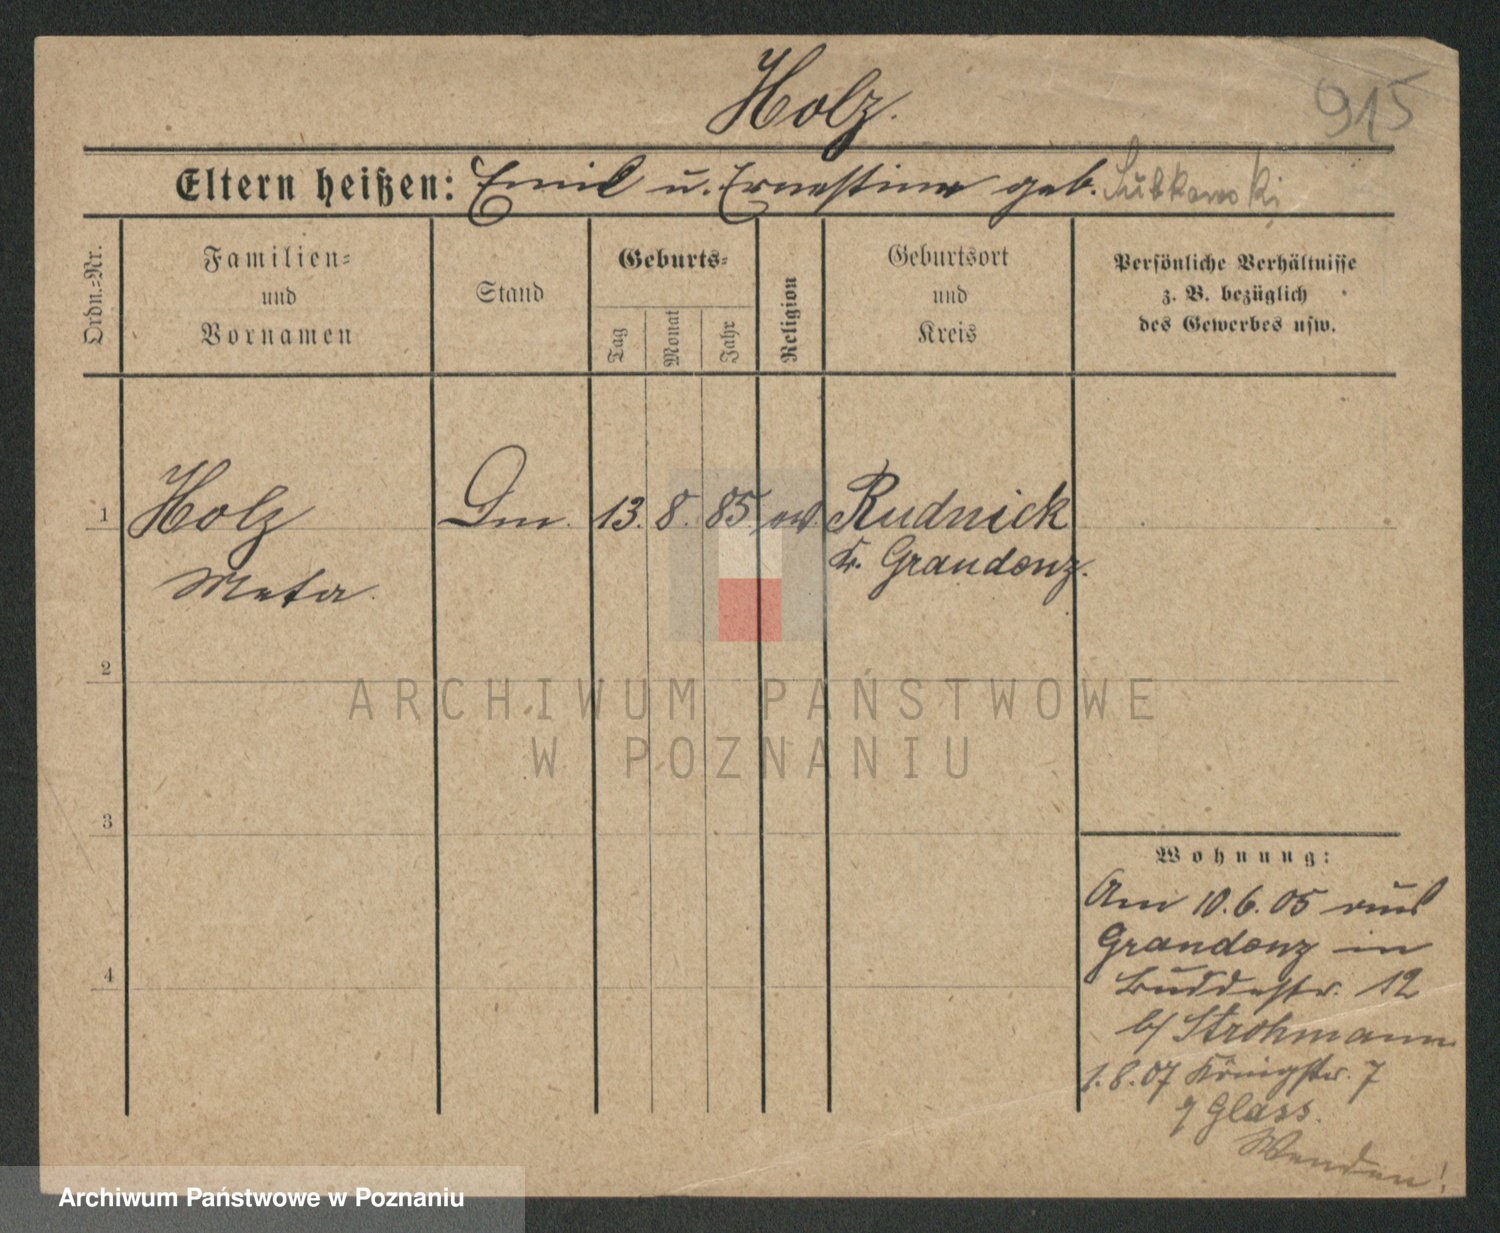 Holz.
915
Eltern heißen: Emil u. Ernestine geb. Lubkowski
Ordn.-Nr.
Familien-
und
Vornamen
Stand
Geburts-
Tag
Monat
Jahr
Religion
Geburtsort
und
Kreis
Persönliche Verhältnisse
z. B. bezüglich
des Gewerbes usw.
1 Holz Dm. 13. 8. 85. ev. Rudnick
Meta. Kr. Graudenz.
2
3
4
Wohnung:
Am 10.6.05 aus
Graudenz in
Buddestr. 12
b/ Strohmann
1.8.07 Königstr. 7
Glass.
Wenden!
ARCHIWUM PAŃSTWOWE
W POZNANIU
Archiwum Państwowe w Poznaniu